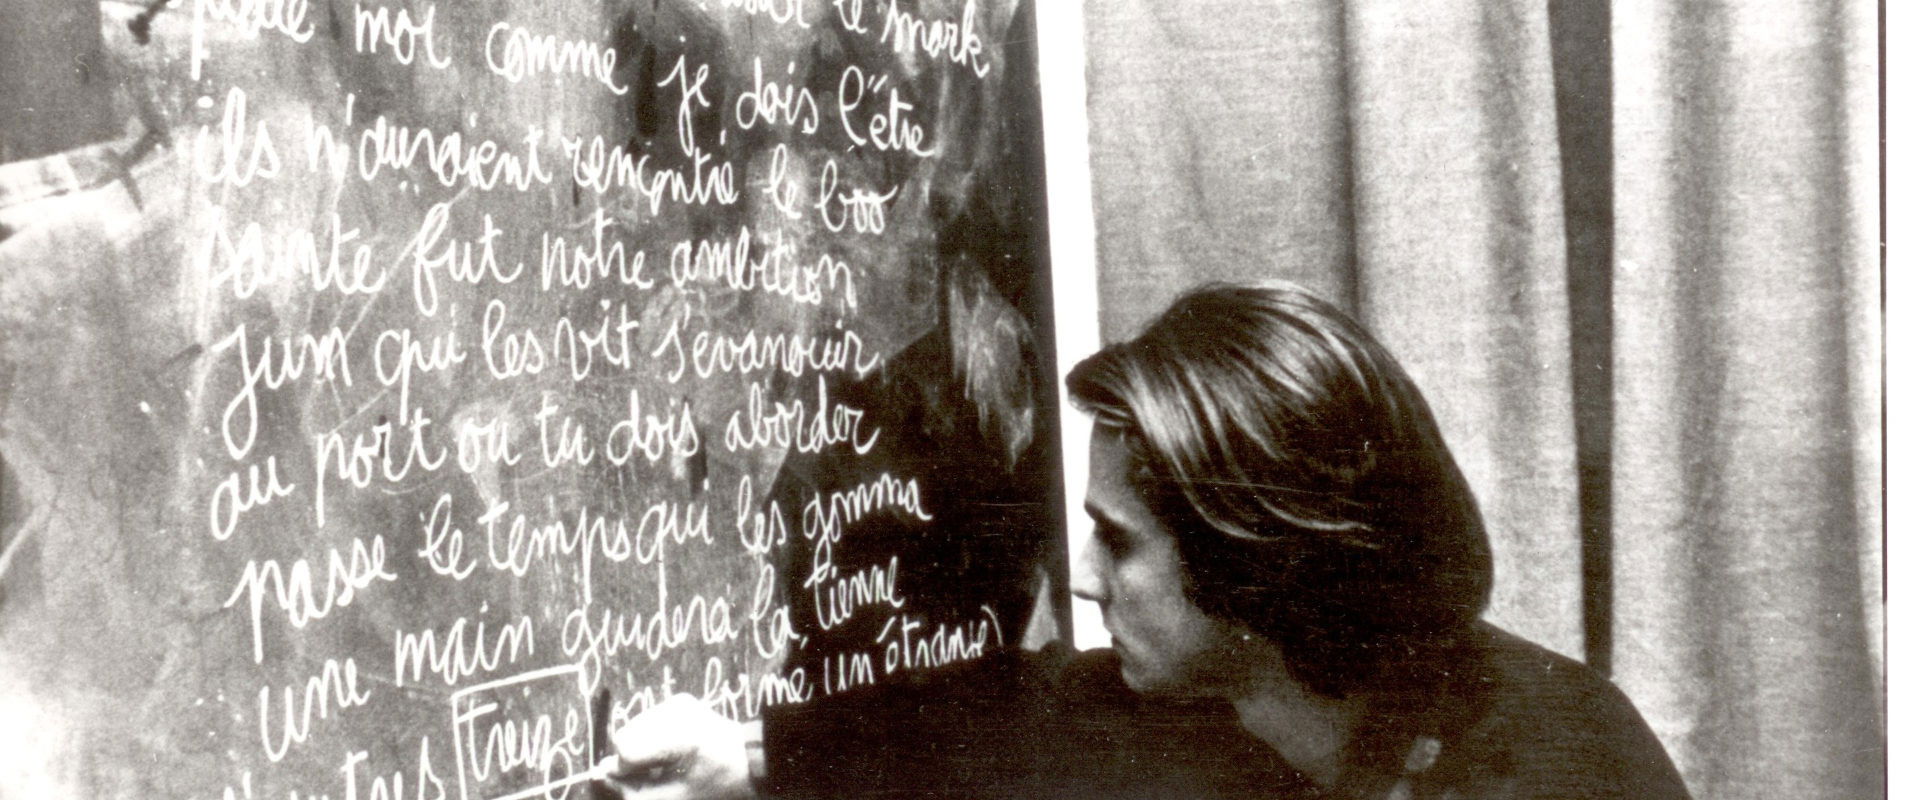 moi comme je dois l'être le mark
ils n'auraient rencontré le boo
sainte fut notre ambition
jum qui les vit s'évanouir
au port ou tu dois aborder
passe le temps qui les gomma
une main guidera la tienne
d'autres treize ont formé un étrange